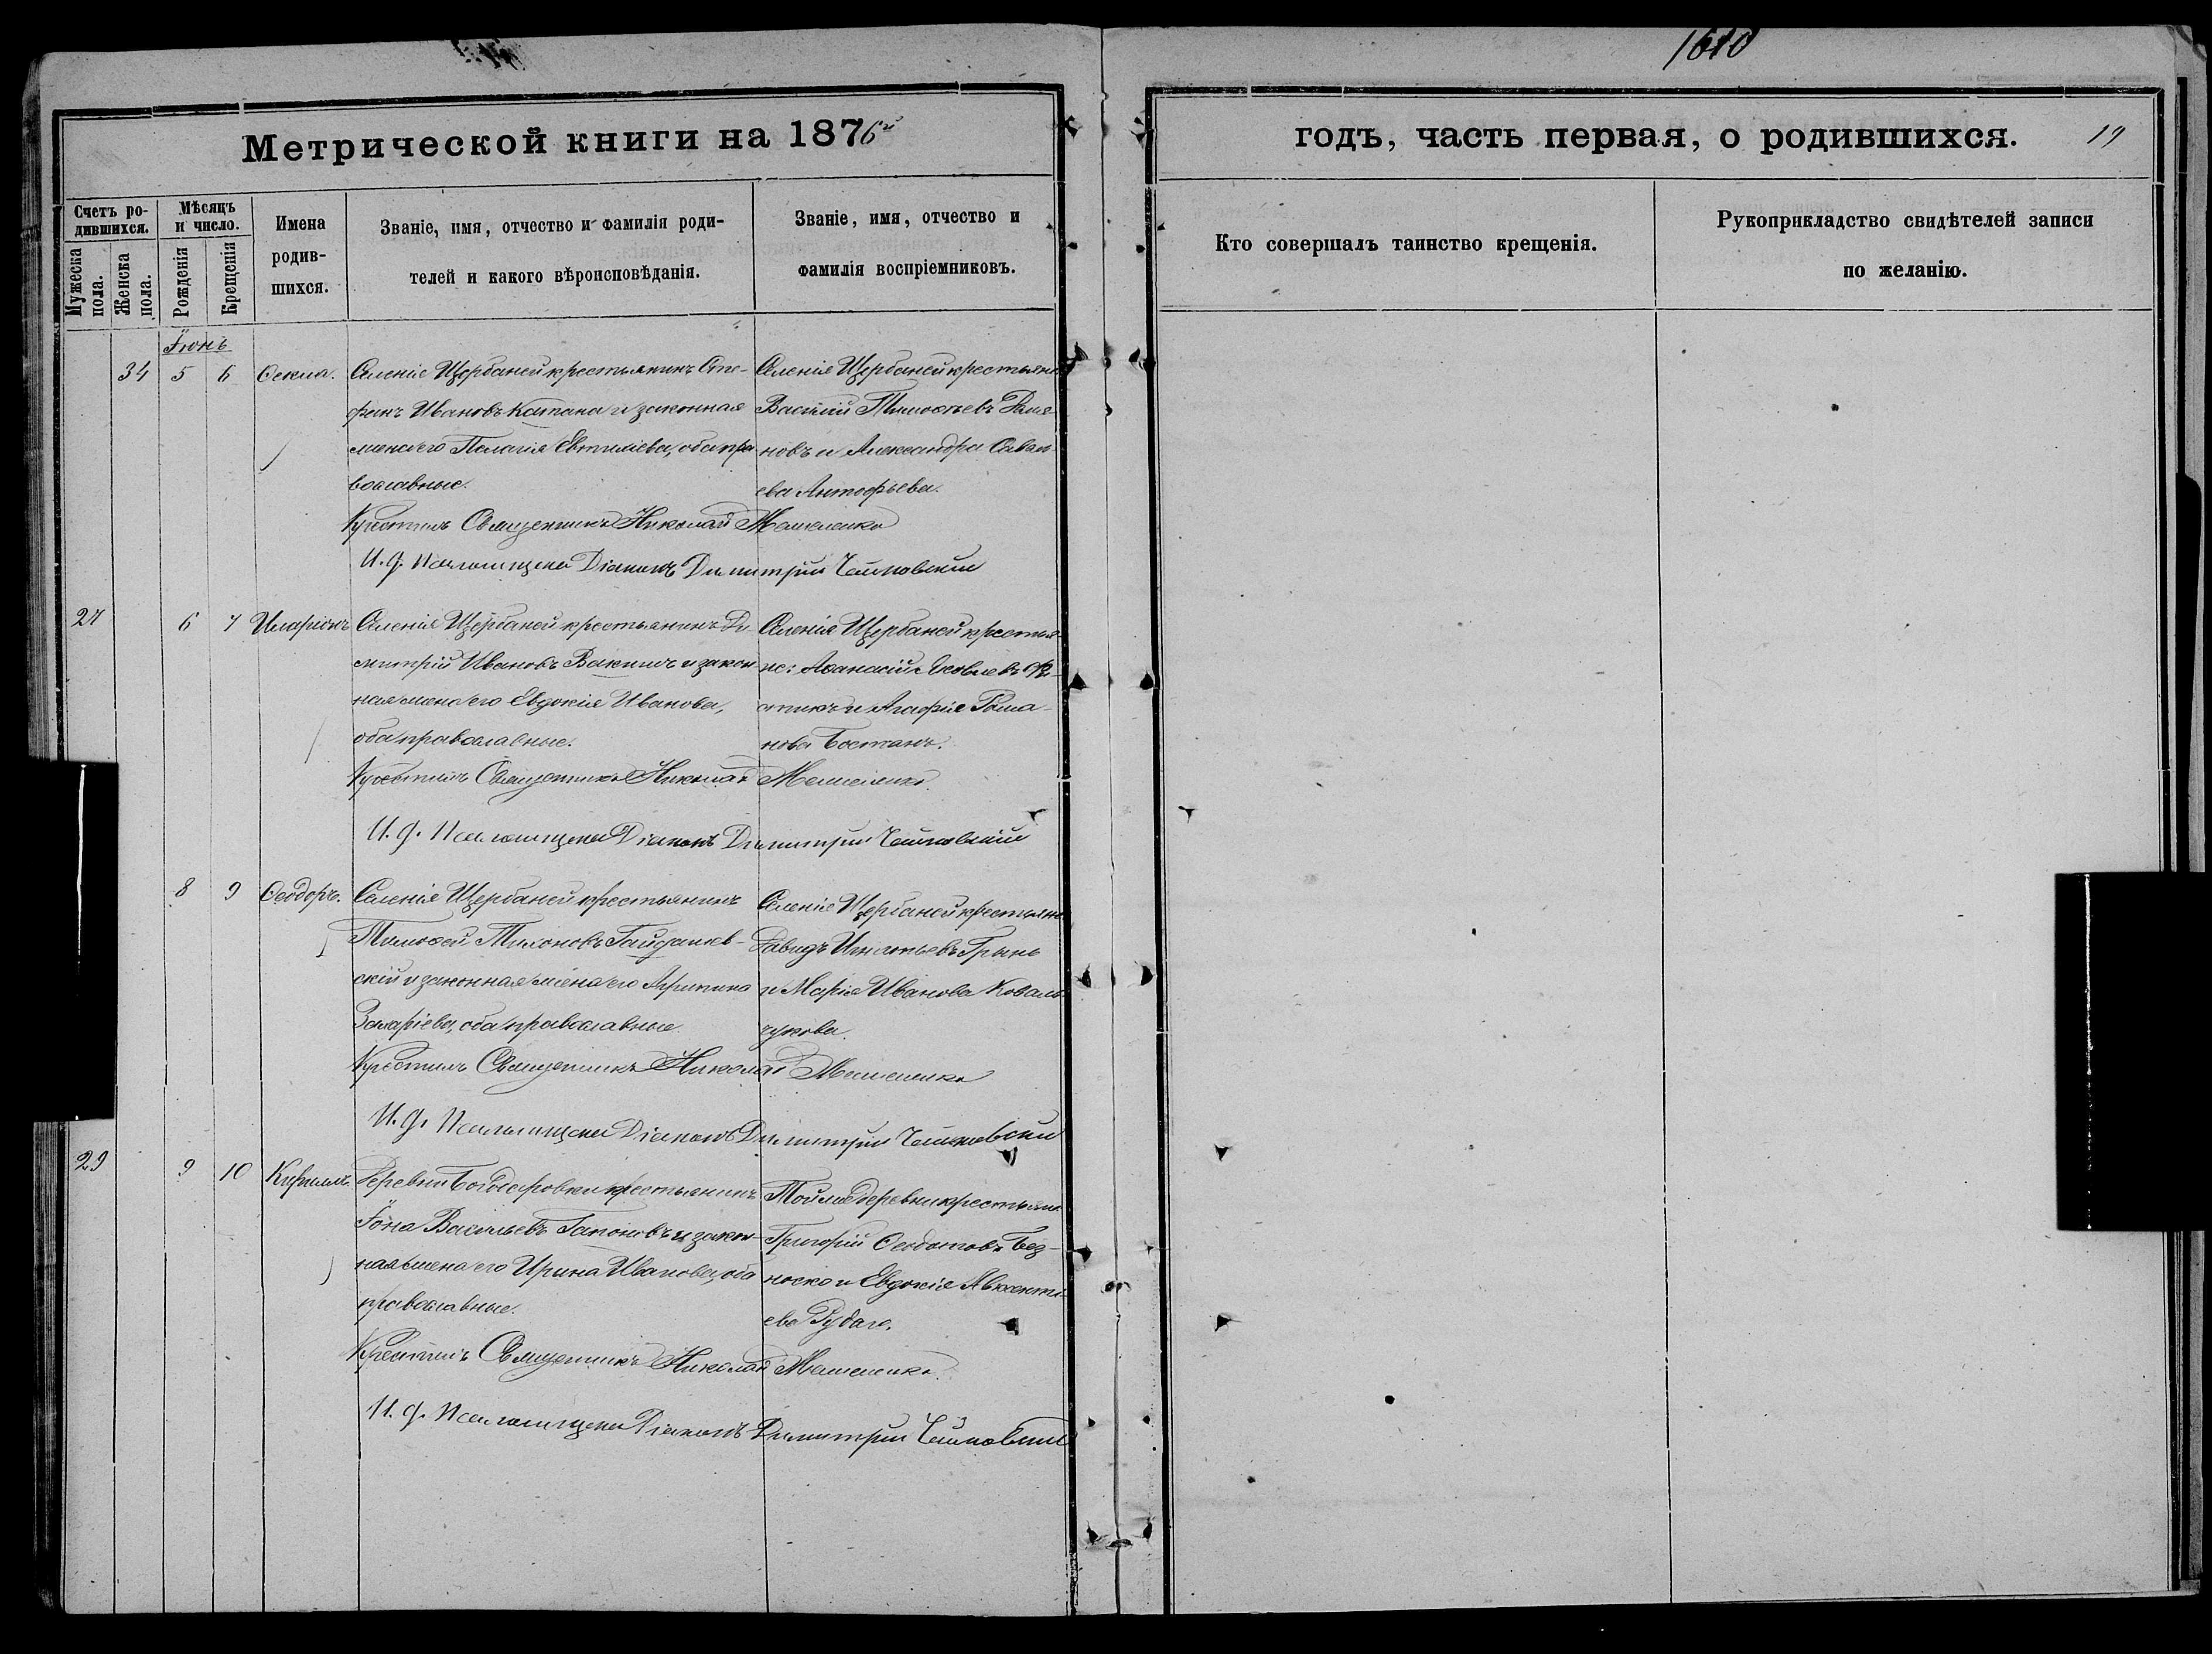 1610
Метрической книги на 1876й
годъ, часть первая, о родившихся.
19
Счетъ ро-
дившихся.
Мужеска пола.
Женска пола.
Мѣсяцъ
и число.
Рожденія
Крещенія
Имена
родив-
шихся.
Званіе, имя, отчество и фамилія роди-
телей и какого вѣроисповѣданія.
Званіе, имя, отчество и
фамилія воспріемниковъ.
Кто совершалъ таинство крещенія.
Рукоприкладство свидѣтелей записи
по желанію.
Іюнь
34 5 6 Ѳекла.
Селенія Щербаней крестьянинъ Сте-
фанъ Ивановъ Катана и законная
жена его Пелагія Евтиміева, оба пра
вославные.
Селенія Щербаней крестьяне
Василій Тимоѳеевъ
новъ и Александра
ева
Крестилъ Священникъ Николай
И. д. Псаломщика Діаконъ Димитрій
6 7 Иларіонъ
Селенія Щербаней крестьянинъ Ди-
митрій Ивановъ и закон
ная жена его Евдокія Иванова,
оба православные.
Селенія Щербаней крестья-
не: Аѳанасій Яковлевъ
и Агафія Рома-
нова Бостанъ.
Крестилъ Священникъ Николай
И. д. Псаломщика Діаконъ Димитрій
8 9 Ѳеодоръ.
Селенія Щербаней крестьянинъ
Тимоѳей Тихоновъ Гайдаев-
скій и законная жена его Агрипина
Захаріева, оба православные.
Селенія Щербаней крестьяне
Давидъ Игнатьевъ Гринь
и Марія Иванова Коваль-
чукова.
Крестилъ Священникъ Николай
И. д. Псаломщика Діаконъ Димитрій
29 9 10 Кириллъ.
Деревни крестьянинъ
Іона Васильевъ Гапоновъ и закон-
ная жена его Ирина Иванова, оба
православные.
Той же деревни крестьяне
Григорій Ѳеодотовъ Без-
носко и Евдокія Авксенті-
ева
Крестилъ Священникъ Николай
И. д. Псаломщика Діаконъ Димитрій